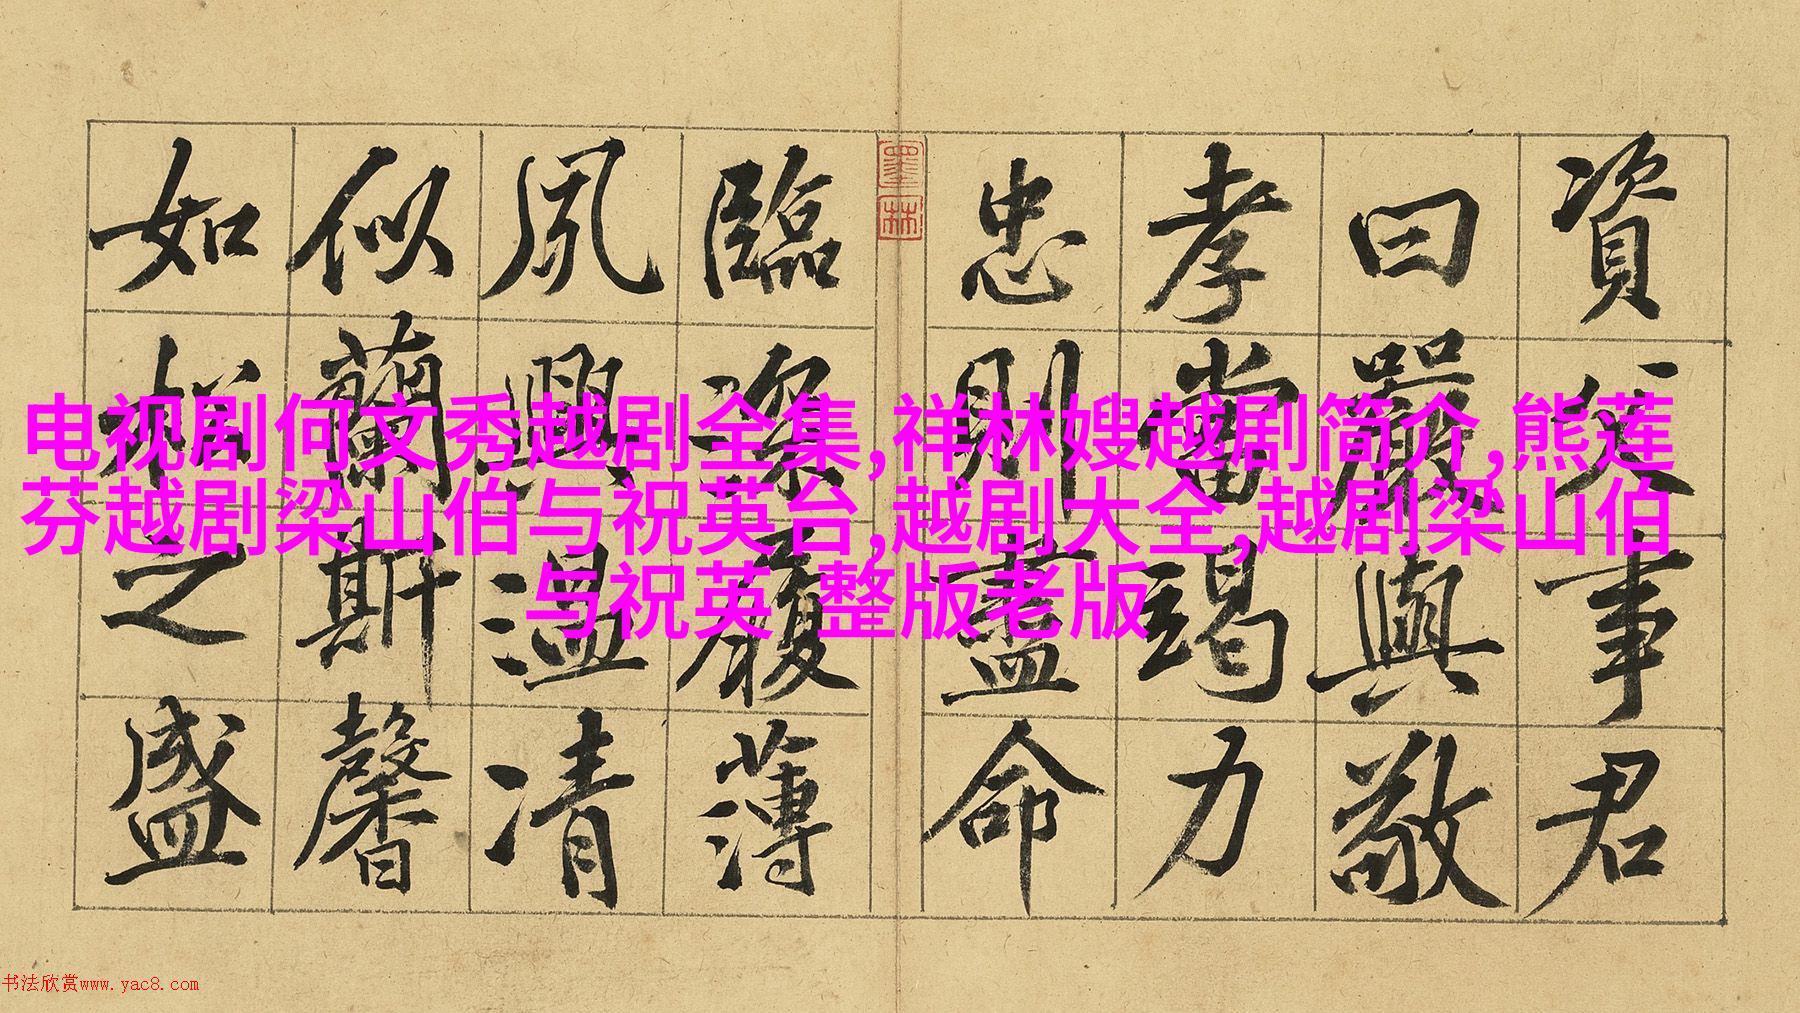 电视剧何文秀越剧全集,祥林嫂越剧简介,熊莲
芬越剧梁山伯与祝英台,越剧大全,越剧梁山伯
与祝英 整版老版
資父事君
曰嚴與敬
孝當竭力
忠則盡命
墨林
臨深履薄
夙興溫凊
似蘭斯馨
如松之盛
书法欣赏www.yac8.com